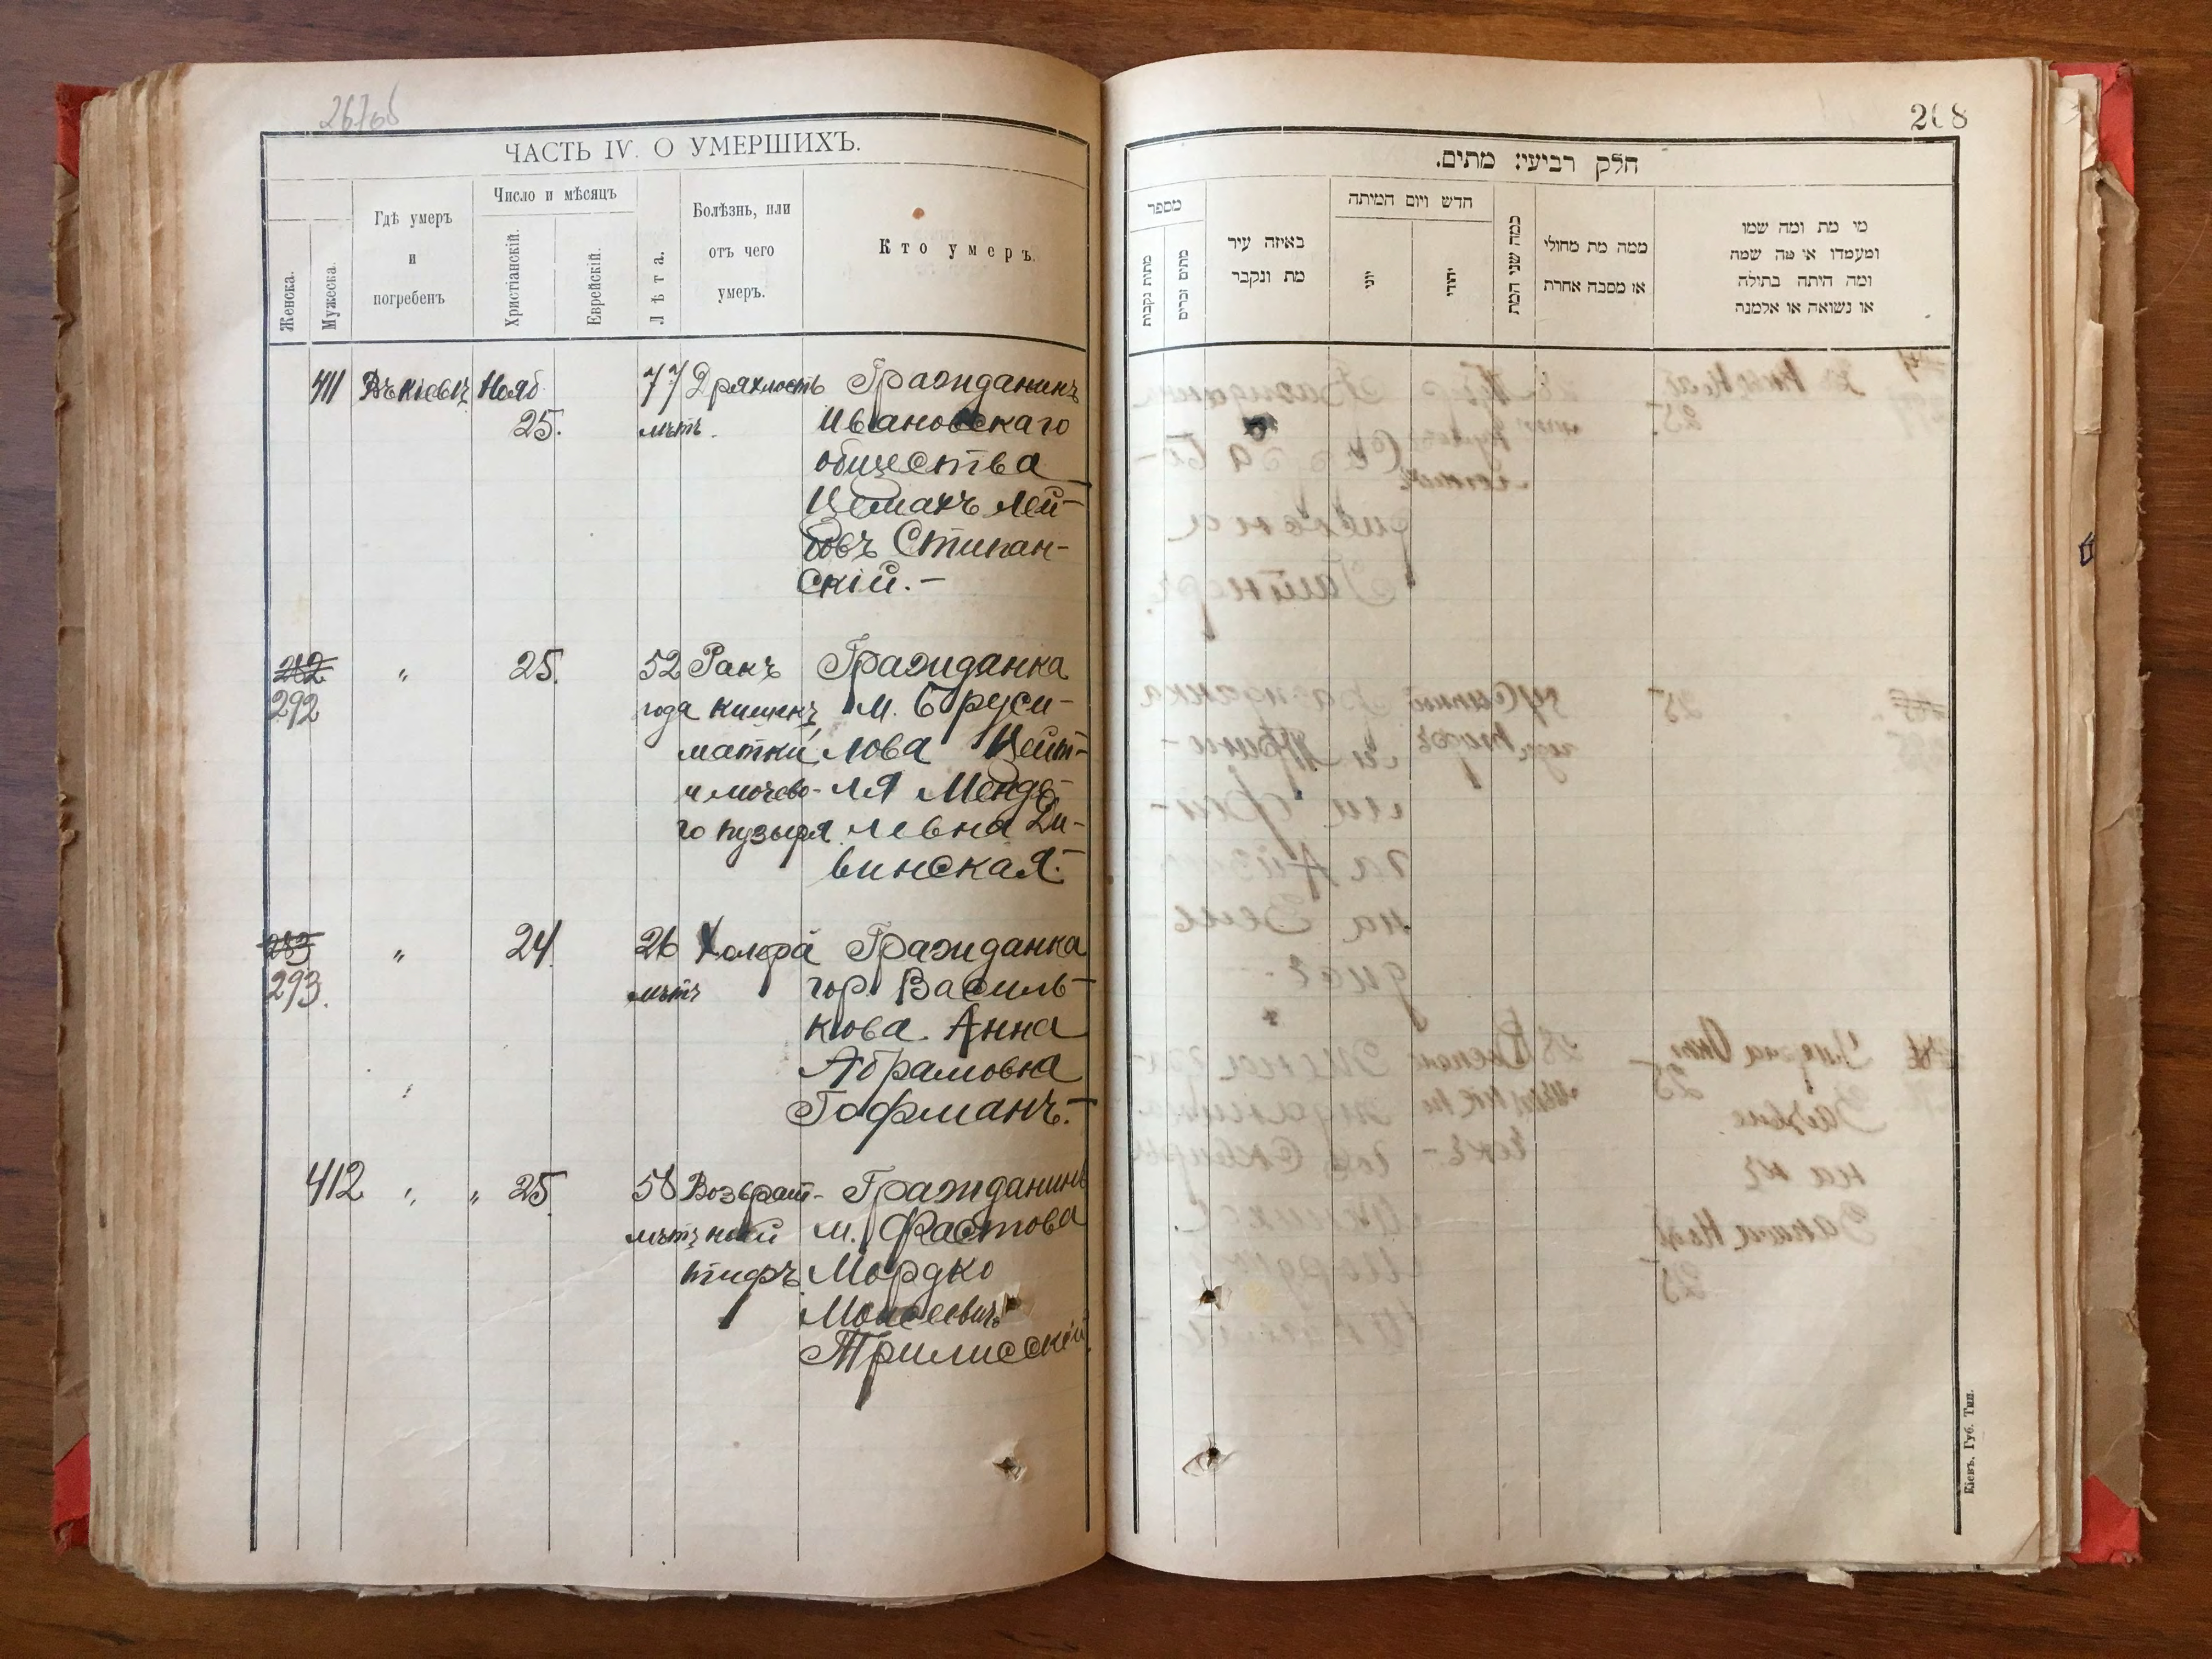 ЧАСТЬ IV. О УМЕРШИХЪ.
Женска.
Мужеска.
Гдѣ умеръ
и
погребенъ
Число и мѣсяцъ
Христіанскій.
Еврейскій.
Лѣта.
Болѣзнь, или
отъ чего
умеръ.
Кто умеръ.
411 Въ Кіевѣ Нояб 77 Дряхлость Гражданинъ
25. лѣтъ. Ивановскаго
общества
Цемахъ Лей-
бовъ Стипан-
скій.-
282 " 25. 52 Ракъ Гражданка
292 года кишекъ м. Бруси-
матки лова Цейт-
и мочево- ля Менде-
го пузыря левна Ди-
винская.-
283 " 24. 26 Холера Гражданка
293. лѣтъ гор. Василь-
кова Анна
Абрамовна
Гофманъ.-
412 " " 25. 58 Возврат- Гражданинъ
лѣтъ ный м. Фастова
тифъ Мордко
Моисеевичъ
Трилисскій.
208
חלק רביעי: מתים.
מספר
מתות נקבות
מתים זכרים
באיזה עיר
מת ונקבר
חדש ויום המיתה
יוני
יהודי
כמה שני המת
ממה מת מחולי
או מסבה אחרת
מי מת ומה שמו
ומעמדו או מה שמה
ומה היתה בתולה
או נשואה או אלמנה
Кіевъ. Губ. Тип.